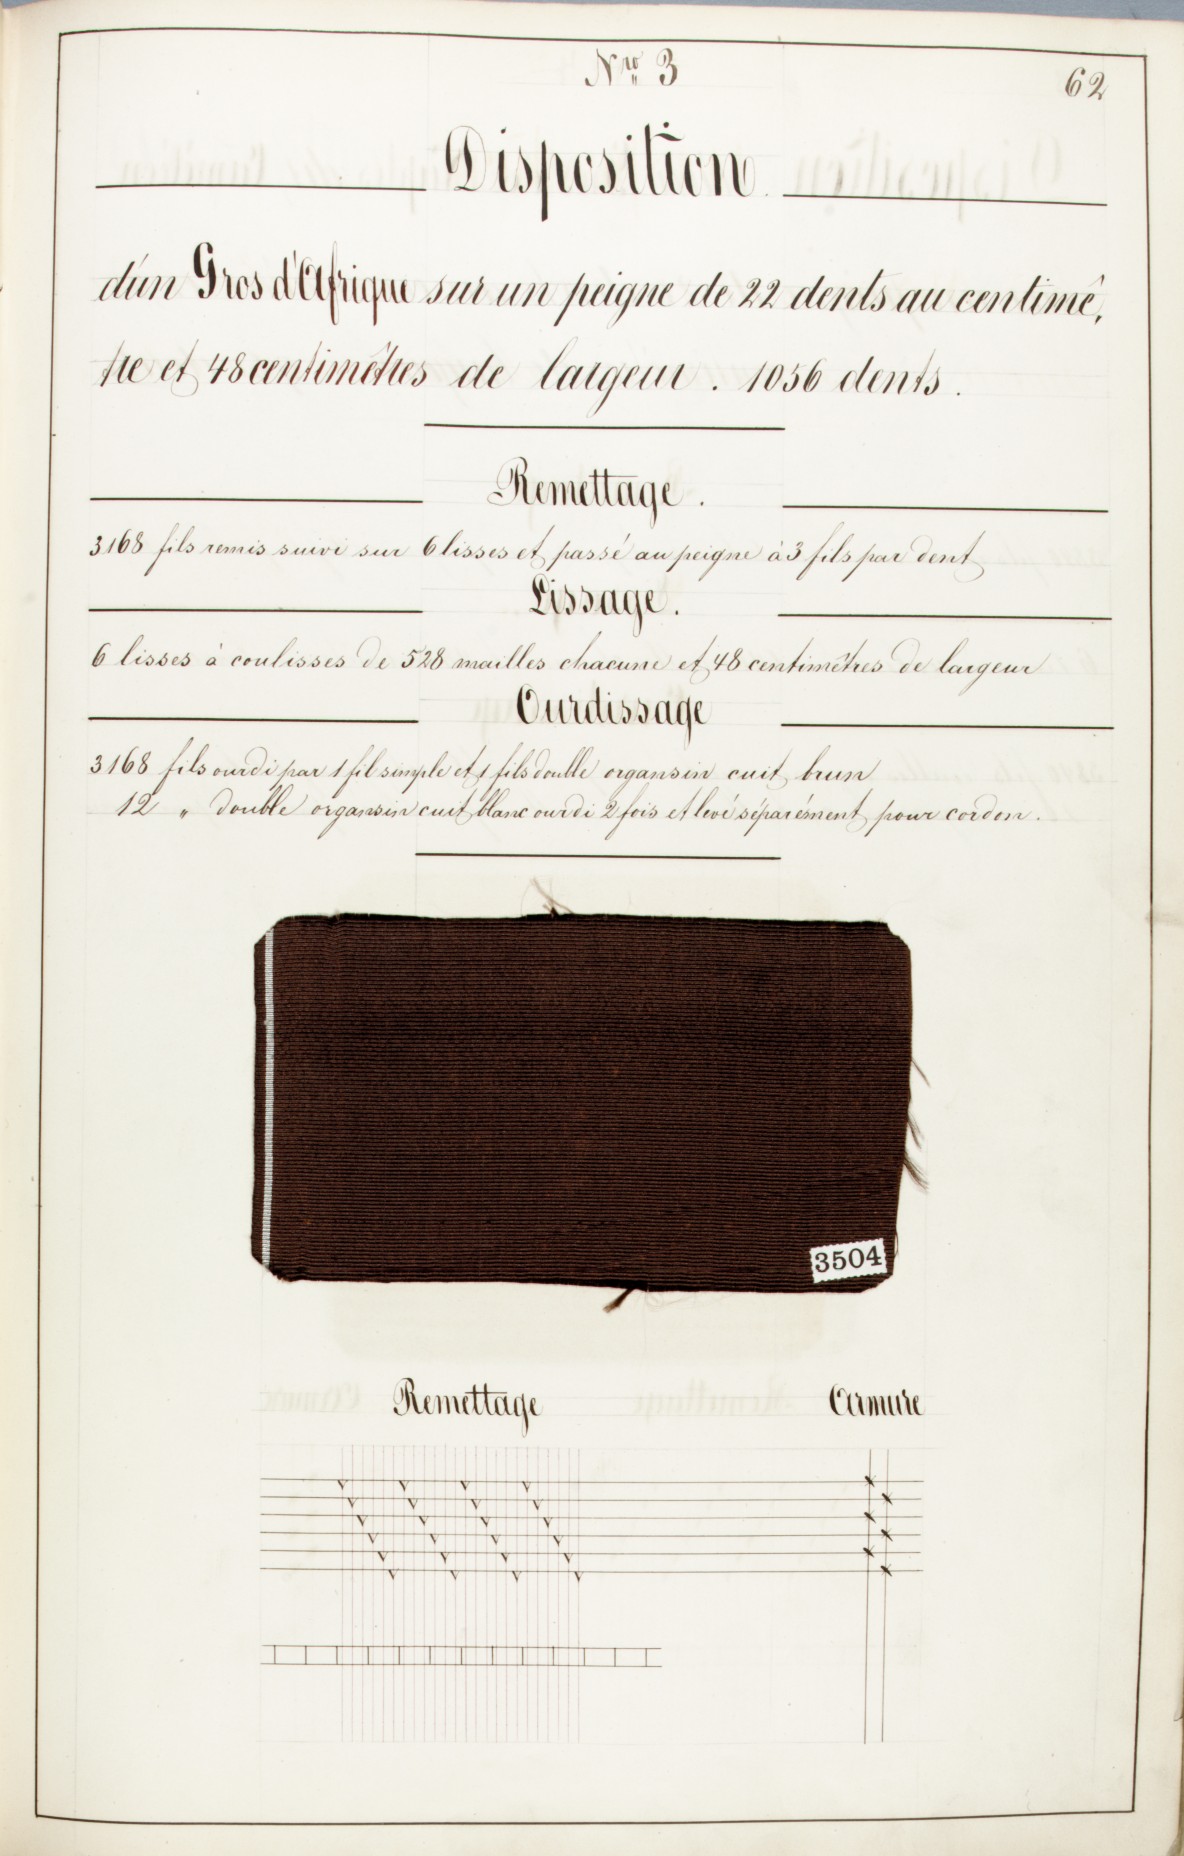 Nro 3
62
Disposition
d'un Gros d'Afrique sur un peigne de 22 dents au centimê,
tre et 48 centimêtres de largeur. 1056 dents.
Remettage.
3168 fils remis suivi sur 6 lisses et passé au peigne à 3 fils par dent
Lissage.
6 lisses à coulisses de 528 mailles chacune et 48 centimêtres de largeur
Ourdissage
3168 fils ourdi par 1 fil simple et 1 fils double organsin cuit brun
12 " double organsin cuit blanc ourdi 2 fois et levé séparément pour cordon.
3504
Remettage Armure